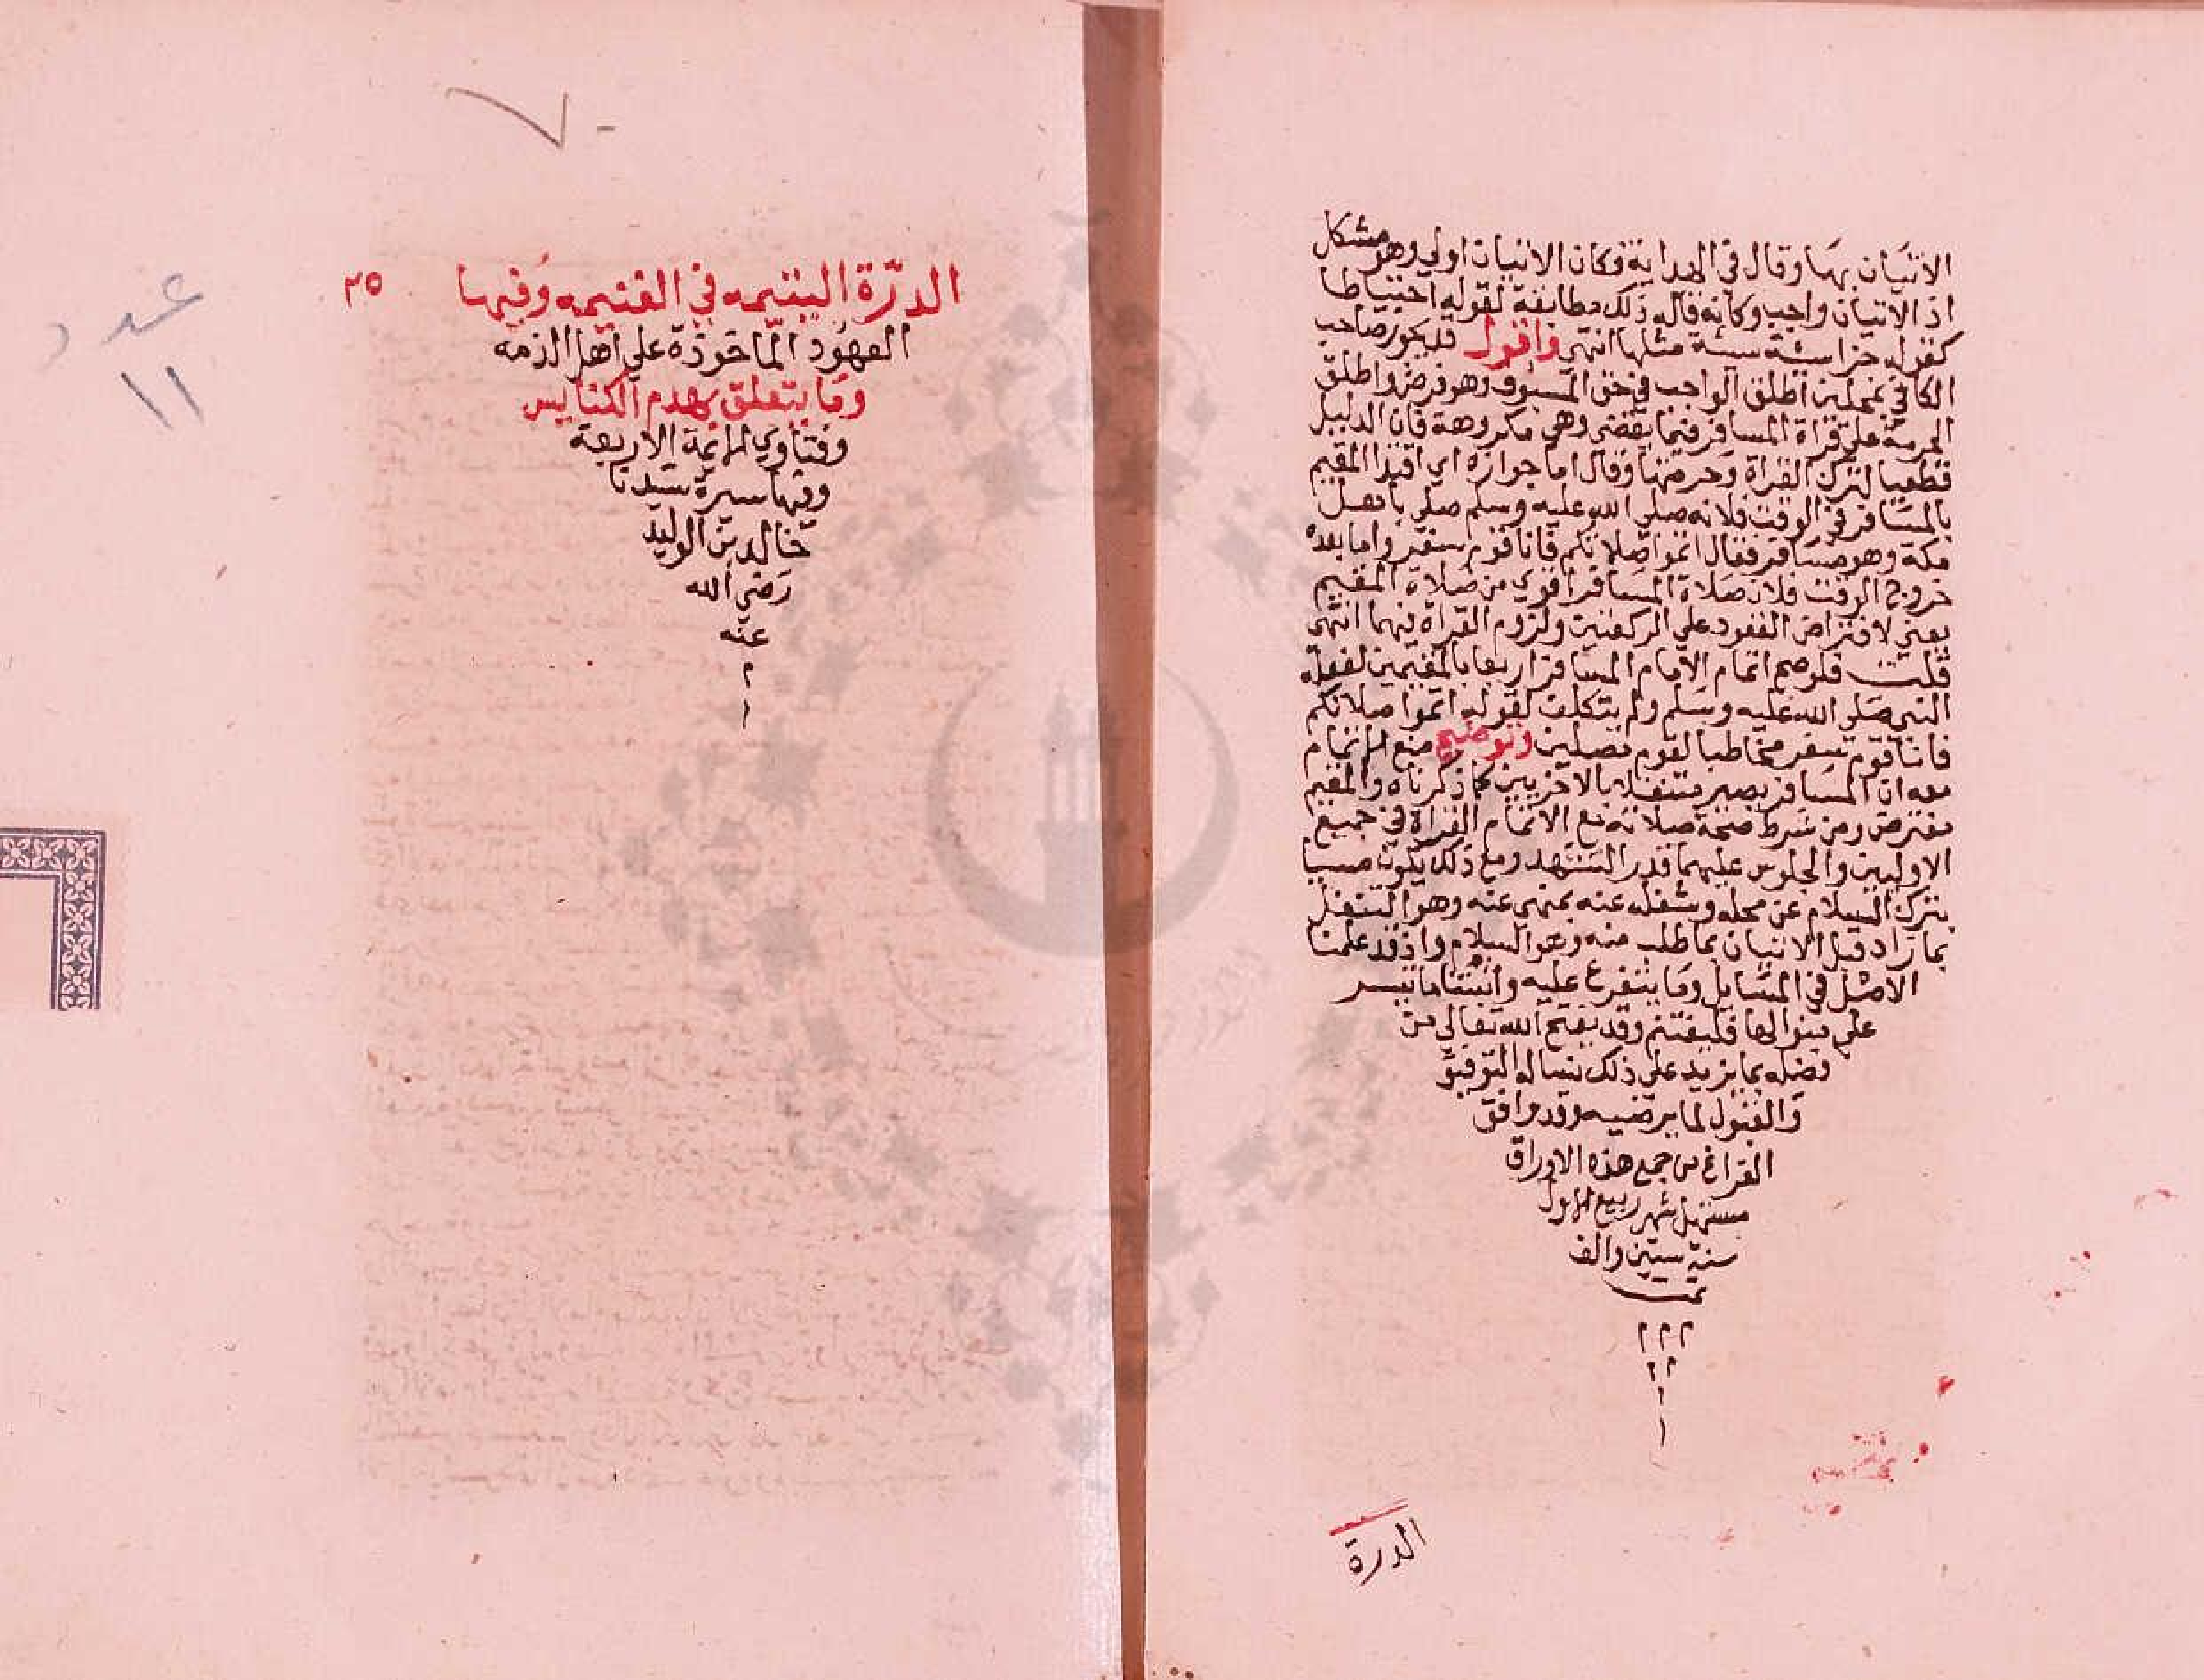 الاتيان بها وقال في الهداية فكان الاتيان اولي وهو مشكل
اذ الاتيان واجب وكانه قاله ذلك مطابقة لقوله احتياطا
كقوله جزا سيئة سيئة مثلها انتهي واقول فليكن صاحب
الكافي اطلق الواجب في حق المسبوق وهو فرض واطلق
الحرمة علي قراة المسافر فيما يقضي وهي مكروهة فان الدليل
قطعيا لترك القراة وقال اما جوازه اي اقتدا المقيم
بالمسافر في الوقت فلانه صلي الله عليه وسلم صلي باهل
مكة وهو مسافر فقال اتموا صلاتكم فانا قوم سفر واما بعده
خروج الوقت فلان صلاة المسافر اقوي من صلاة المقيم
يعني لافتراض القعود علي الركعتين ولزوم القراة فيهما انتهي
قلت فلو صح اتمام الامام المسافر اربعا بالمقيمين لفعله
النبي صلي الله عليه وسلم ولم يتكلف لقوله اتموا صلاتكم
فانا قوم سفر مخاطبا لقوم مصلين وتوضيح منع الاتمام
معه ان المسافر يصير متنفلا بالاخريين كما ذكرناه والمقيم
مفترض ومن شرط صحة صلاته مع الاتمام القراة في جميع
الاوليين والجلوس عليهما قدر التشهد ومع ذلك يكون مسيا
بترك السلام عن محله وشغله عنه بمنهي عنه وهو التنفل
بما زاد قبل الاتيان بما طلب منه وهو السلام واذ قد علمنا
الاصل في المسايل وما يتفرع عليه واثبتنا ما تيسر
علي منوالها فليغتنم وقد يفتح الله تعالي من
فضله بما يزيد علي ذلك نساله التوفيق
والقبول لما يرضيه وقد وافق
الفراغ من جمع هذه الاوراق
مستهل شهر ربيع الاول
سنة ستين والف
تمت
٢٢٢
٢٢
١
١
الدرة
٧-
الدرّة اليتيمه في الغنيمه وفيها ٢٥
العهود الماخوذة علي اهل الذمه
وما يتعلق بهدم الكنايس
وفتاوي الايمة الاربعة
وفيها سيرة سيدنا
خالد بن الوليد
رضي الله
عنه
٢
١
عدد
١١